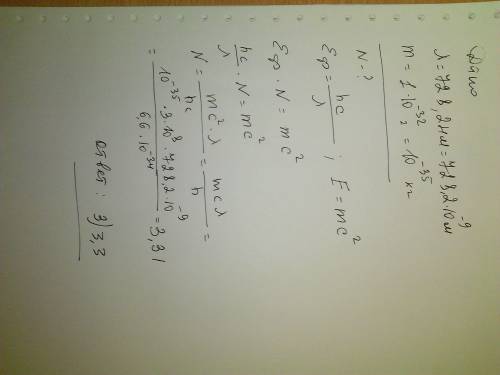 Дано
λ = 728,2 нм = 728,2·10⁻⁹ м
m = 1·10⁻³² г = 10⁻³⁵ кг
N - ?
Eφ = hc/λ ; E = mc²
Eφ · N = mc²
hc/λ · N = mc²
N = mc²·λ/hc = mcλ/h =
= 10⁻³⁵·3·10⁸·728,2·10⁻⁹/6,6·10⁻³⁴ = 3,31
ответ: 3) 3,3